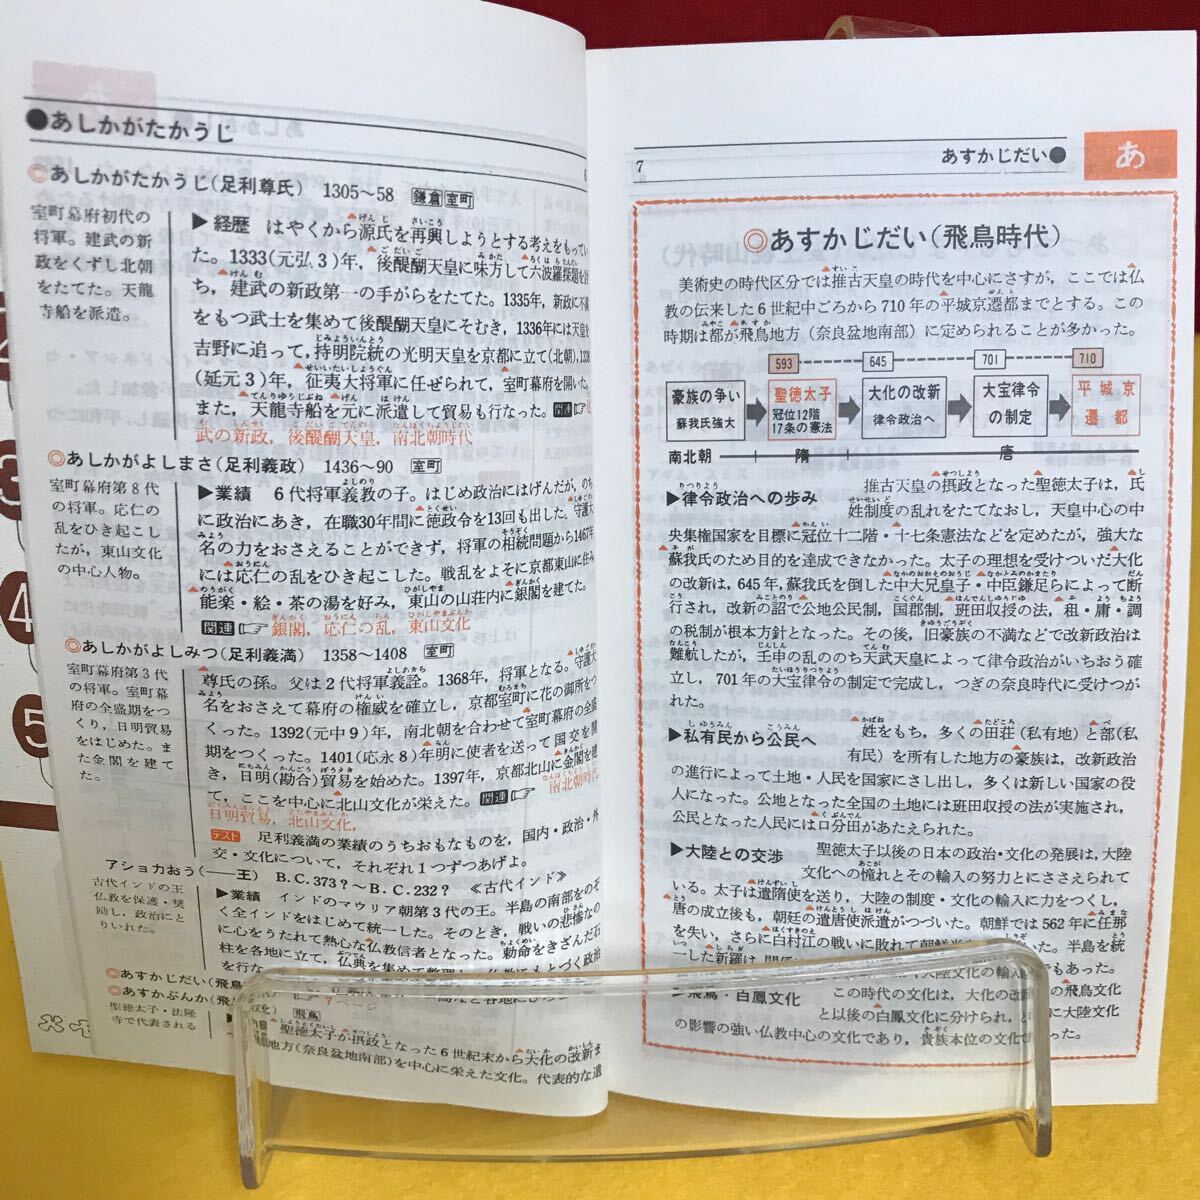 ●あしかがたかうじ
◎あしかがたかうじ(足利尊氏) 1305～58 鎌倉 室町
室町幕府初代の
将軍。建武の新
政をくずし北朝
をたてた。天龍
寺船を派遣。
▶経歴 はやくから源氏を再興しようとする考えをもってい
た。1333(元弘3)年，後醍醐天皇に味方して六波羅探題を討
ち，建武の新政第一の手がらをたてた。1335年，新政に不満
をもつ武士を集めて後醍醐天皇にそむき，1336年には天皇を
吉野に追って，持明院統の光明天皇を京都に立て(北朝)，1338
(延元3)年，征夷大将軍に任ぜられて，室町幕府を開いた。
また，天龍寺船を元に派遣して貿易も行なった。関連☞
武の新政，後醍醐天皇，南北朝時代
◎あしかがよしまさ(足利義政) 1436～90 室町
室町幕府第8代
の将軍。応仁の
乱をひき起こし
たが，東山文化
の中心人物。
▶業績 6代将軍義教の子。はじめ政治にはげんだが，のち
に政治にあき，在職30年間に徳政令を13回も出した。守護大
名の力をおさえることができず，将軍の相続問題から1467年
には応仁の乱をひき起こした。戦乱をよそに京都東山に住み
能楽・絵・茶の湯を好み，東山の山荘内に銀閣を建てた。
関連☞銀閣，応仁の乱，東山文化
◎あしかがよしみつ(足利義満) 1358～1408 室町
室町幕府第3代
の将軍。室町幕
府の全盛期をつ
くり，日明貿易
をはじめた。ま
た金閣を建て
た。
尊氏の孫。父は2代将軍義詮。1368年，将軍となる。守護大
名をおさえて幕府の権威を確立し，京都室町に花の御所をつ
くった。1392(元中9)年，南北朝を合わせて室町幕府の全盛
期をつくった。1401(応永8)年明に使者を送って国交を開
き，日明(勘合)貿易を始めた。1397年，京都北山に金閣を建
て，ここを中心に北山文化が栄えた。関連☞南北朝時代
日明貿易，北山文化，
テスト 足利義満の業績のうちおもなものを，国内・政治・外
交・文化について，それぞれ1つずつあげよ。
アショカおう(――王) B.C.373?～B.C.232? 《古代インド》
古代インドの王
仏教を保護・奨
励し，政治にと
りいれた。
▶業績 インドのマウリア朝第3代の王。半島の南部をのぞ
く全インドをはじめて統一した。そのとき，戦いの悲惨なの
に心をうたれて熱心な仏教信者となった。勅命をきざんだ石
柱を各地に立て，仏典を集めて整理
を行な
◎あすかじだい(飛鳥
◎あすかぶんか(飛
文化) 飛鳥
聖徳太子・法隆
寺で代表される
内容 聖徳太子が摂政となった6世紀末から大化の改新ま
地方(奈良盆地南部)を中心に栄えた文化。代表的な遺
7
あすかじだい●
あ
◎あすかじだい(飛鳥時代)
美術史の時代区分では推古天皇の時代を中心にさすが，ここでは仏
教の伝来した6世紀中ごろから710年の平城京遷都までとする。この
時期は都が飛鳥地方(奈良盆地南部)に定められることが多かった。
593 645 701 710
豪族の争い 蘇我氏強大
聖徳太子 冠位12階 17条の憲法
大化の改新 律令政治へ
大宝律令の制定
平城京遷都
南北朝 隋 唐
▶律令政治への歩み 推古天皇の摂政となった聖徳太子は，氏
姓制度の乱れをたてなおし，天皇中心の中
央集権国家を目標に冠位十二階・十七条憲法などを定めたが，強大な
蘇我氏のため目的を達成できなかった。太子の理想を受けついだ大化
の改新は，645年，蘇我氏を倒した中大兄皇子・中臣鎌足らによって断
行され，改新の詔で公地公民制，国郡制，班田収授の法，租・庸・調
の税制が根本方針となった。その後，旧豪族の不満などで改新政治は
難航したが，壬申の乱ののち天武天皇によって律令政治がいちおう確
立し，701年の大宝律令の制定で完成し，つぎの奈良時代に受けつが
れた。
▶私有民から公民へ 姓をもち，多くの田荘(私有地)と部(私
有民)を所有した地方の豪族は，改新政治
の進行によって土地・人民を国家にさし出し，多くは新しい国家の役
人になった。公地となった全国の土地には班田収授の法が実施され，
公民となった人民には口分田があたえられた。
▶大陸との交渉 聖徳太子以後の日本の政治・文化の発展は，大陸
文化への憧れとその輸入の努力とにささえられて
いる。太子は遣隋使を送り，大陸の制度・文化の輸入に力をつくし，
唐の成立後も，朝廷の遣唐使派遣がつづいた。朝鮮では562年に任那
を失い，さらに白村江の戦いに敗れて朝鮮半
った。半島を統
一した新羅は
大陸文化の輸入
もあった。
▶飛鳥・白鳳文化 この時代の文化は，大化の改新
の飛鳥文化
と以後の白鳳文化に分けられ，
に大陸文化
の影響の強い仏教中心の文化であり，貴族本位の文化
2
3
4
5